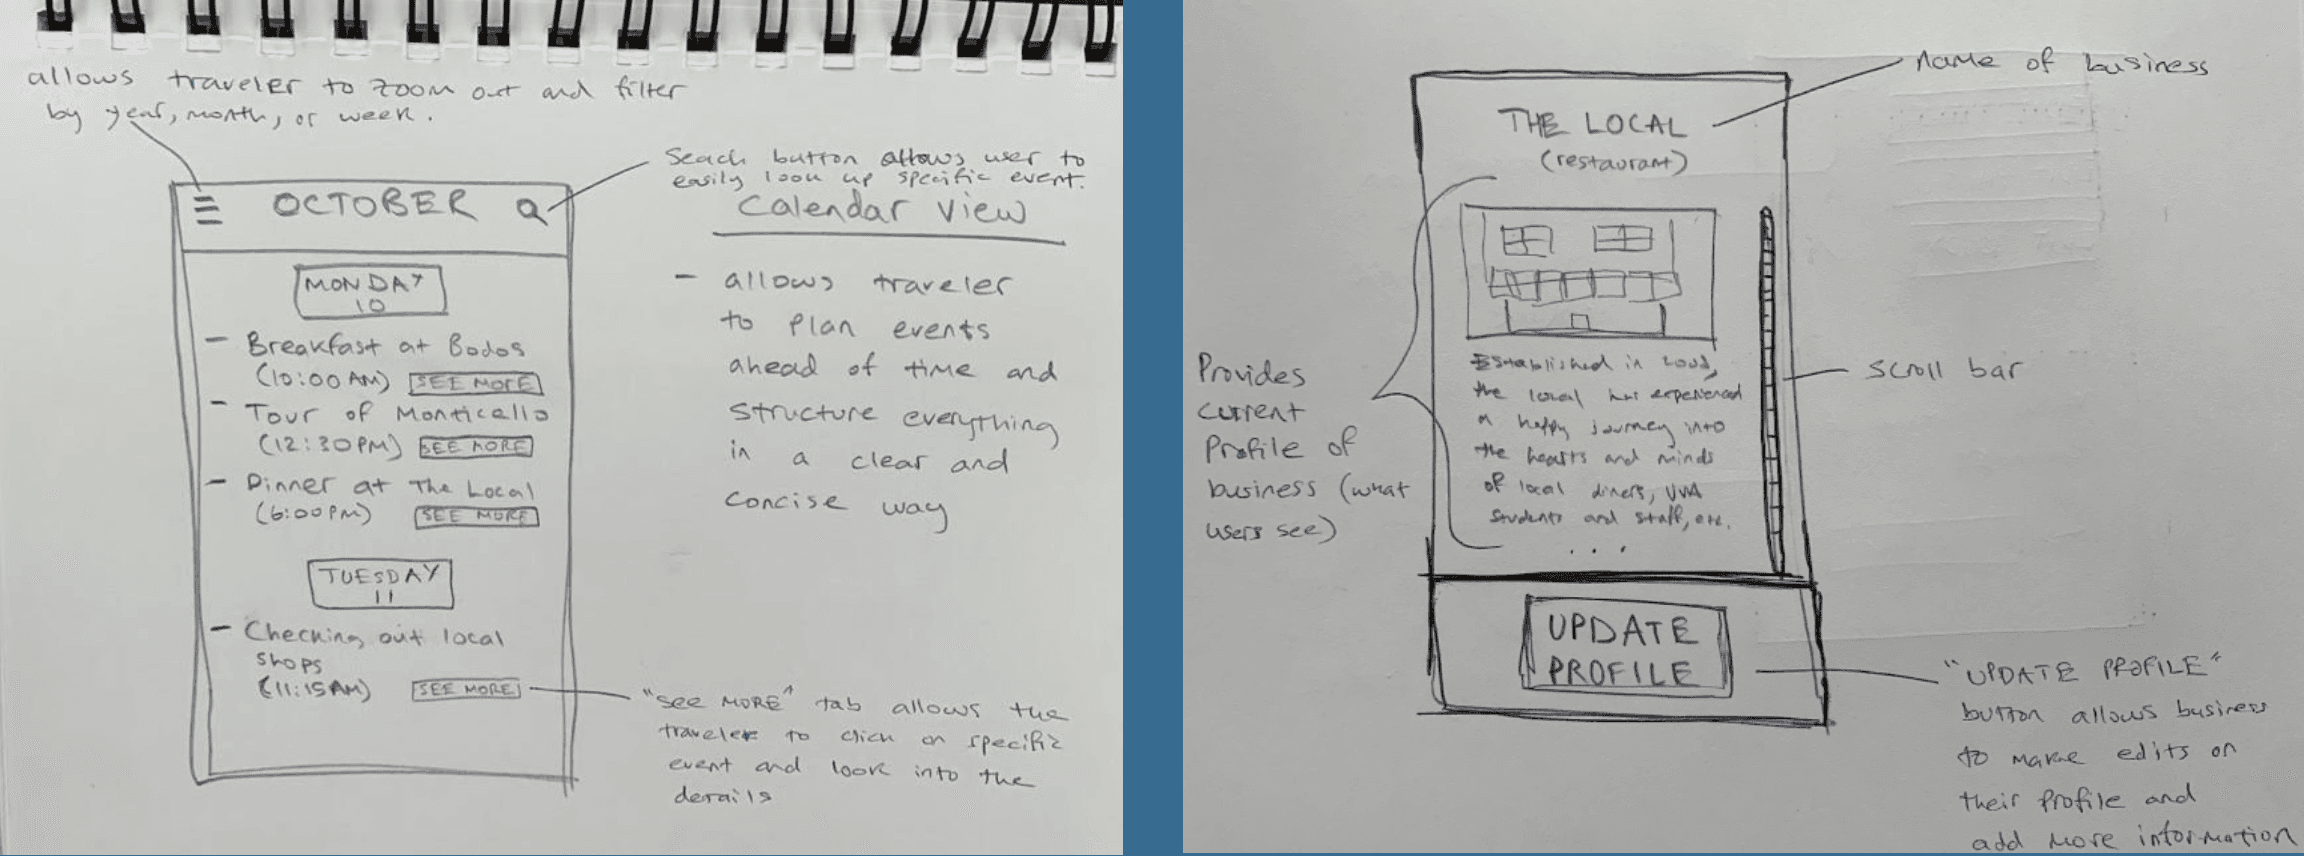 allows traveler to zoom out and filter
by year, month, or week.
Seach button allows user to
easily look up specific event.
OCTOBER
Calendar View
MONDAY
10
- Breakfast at Bodos
(10:00AM) SEE MORE
- Tour of Monticello
(12:30PM) SEE MORE
- Dinner at The Local
(6:00PM) SEE MORE
TUESDAY
11
- Checking out local
shops
(11:15AM) SEE MORE
- allows traveler
to plan events
ahead of time and
structure everything
in a clear and
concise way
"SEE MORE" tab allows the
traveler to click on specific
event and look into the
details
name of business
THE LOCAL
(restaurant)
Provides
current
Profile of
business (what
users see)
Established in
the local has experienced
a happy journey into
the hearts and minds
of local diners, UVA
students and staff, etc.
...
scroll bar
UPDATE
PROFILE
"UPDATE PROFILE"
button allows business
to make edits on
their profile and
add more information